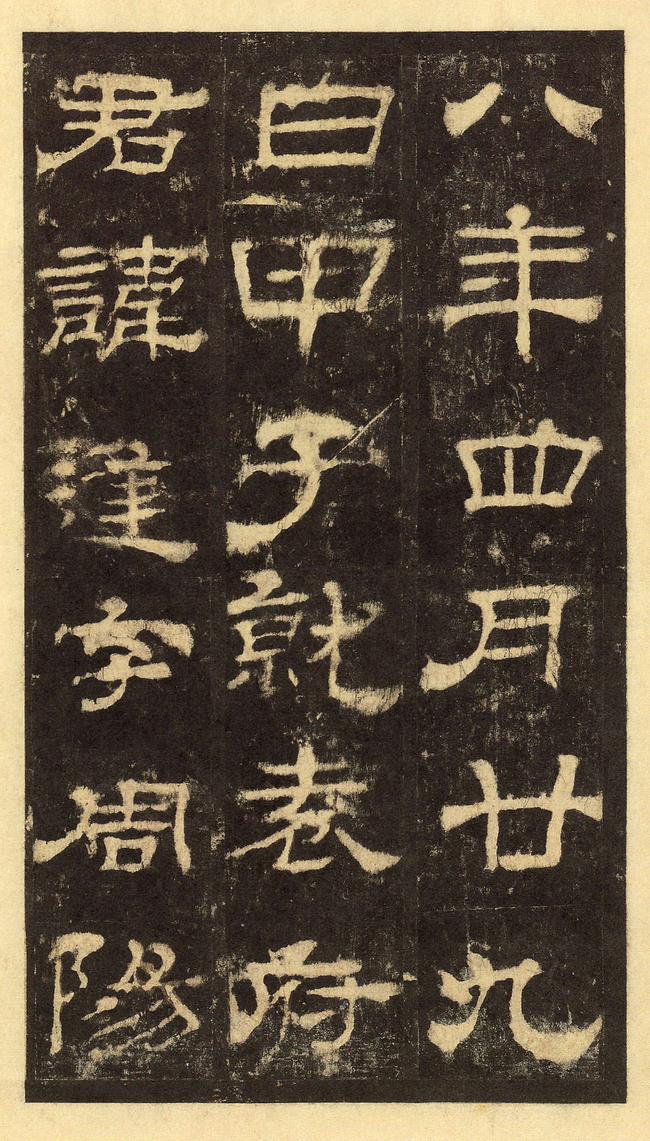 八年四月廿九
日甲子就袁府
君諱逢字周陽